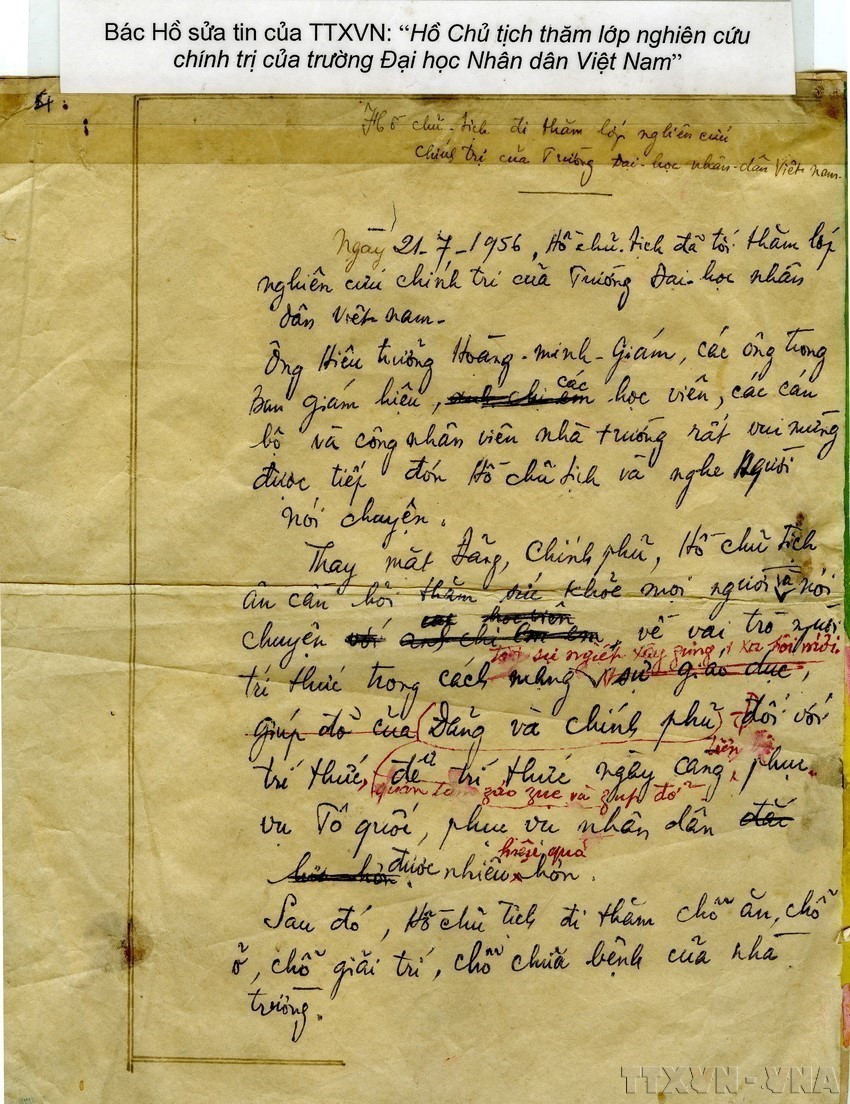 Bác Hồ sửa tin của TTXVN: “Hồ Chủ tịch thăm lớp nghiên cứu
chính trị của trường Đại học Nhân dân Việt Nam”
Hồ chủ-tịch đi thăm lớp nghiên cứu
chính trị của Trường Đại-học nhân-dân Việt-nam-
Ngày 21-7-1956, Hồ chủ-tịch đã tới thăm lớp
nghiên cứu chính trị của Trường Đại-học nhân
dân Việt-nam-
Ông Hiệu trưởng Hoàng-minh-Giám, các ông trong
ban giám hiệu, anh chị em các học viên, các cán
bộ và công nhân viên nhà trường rất vui mừng
được tiếp đón Hồ chủ tịch và nghe Người
nói chuyện.
Thay mặt Đảng, Chính phủ, Hồ chủ tịch
ân cần hỏi thăm sức khỏe mọi người và nói
các học viên
chuyện với anh chị em, về vai trò người
sự nghiệp xây dựng xã hội mới
trí thức trong cách mạng, sự giáo dục,
giúp đỡ của (Đảng và chính phủ) đối với
tiến bộ
trí thức, (để trí thức ngày càng phục
quan tâm záo zục và zúp đỡ
vụ Tổ quốc, phục vụ nhân dân đắc
hiệu quả
lực hơn. được nhiều hơn.
Sau đó, Hồ chủ tịch đi thăm chỗ ăn, chỗ
ở, chỗ giải trí, chỗ chữa bệnh của nhà
trường.
TTXVN-VNA